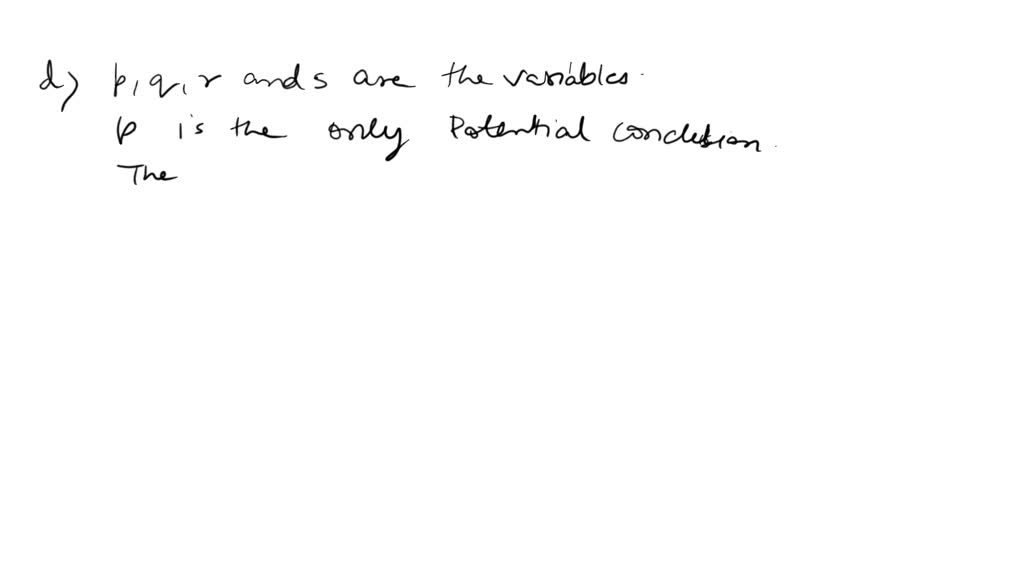 d) p, q, r and s are the variables.
p is the only Potential conclusion.
The